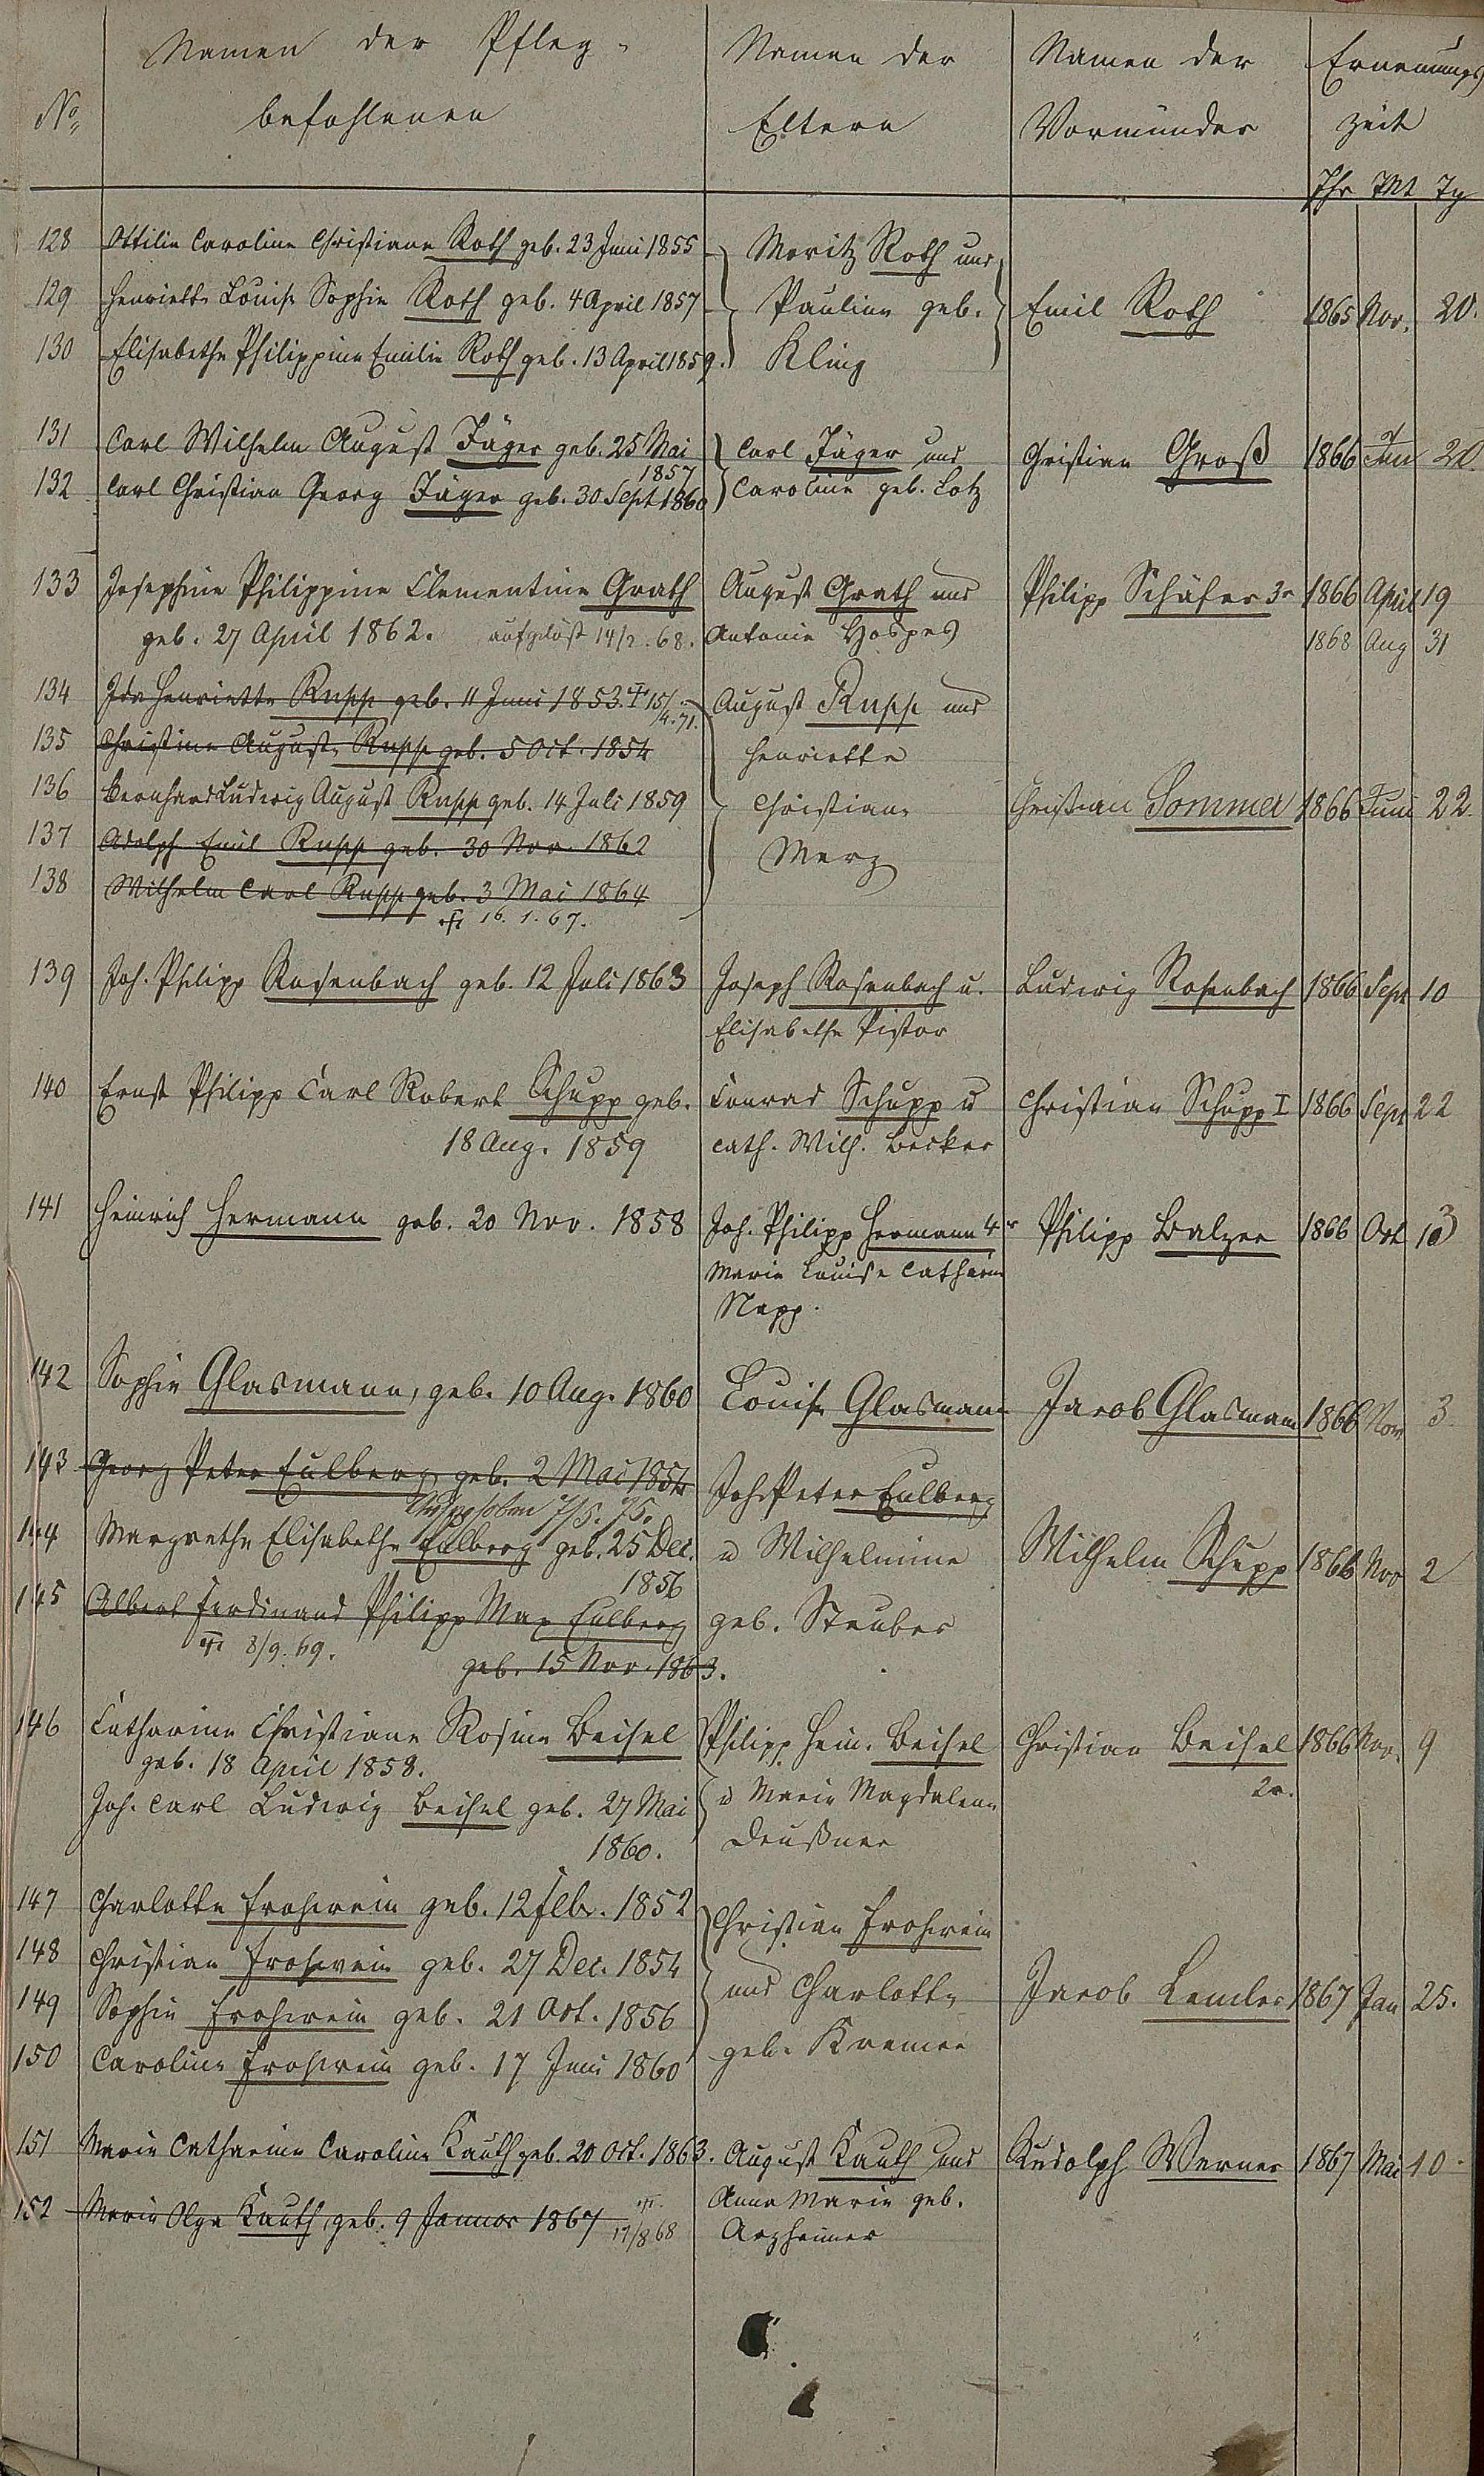 No. Namen der Pfleg- Namen der Namen der Ernennungs
befohlenen Eltern Vormünder zeit
Jhr Mt Tg
128 Ottilie Caroline Christiane Roth geb. 23 Juni 1855 Moritz Roth und
129 Henriette Louise Sophie Roth geb. 4 April 1857 Pauline geb. Emil Roth 1865 Nov. 20.
130 Elisabethe Philippine Emilie Roth geb. 13 April 1859. Kling
131 Carl Wilhelm August Jäger geb. 25 Mai Carl Jäger und Christian Groß 1866 20
1857
132 Carl Christian Georg Jäger geb. 30 Sept 1860 Caroline geb. Lotz
133 Josephine Philippine Clementine Grath August Grath und Philipp Schäfer 3r 1866 April 19
geb. 27 April 1862. aufgelöst 14/2. 68. Antonie Hospes 1868 Aug 31
134 Ida Henriette Rupp geb. 11 Juni 1853. † 15/4. 71. August Rupp und
135 Christine Auguste Rupp geb. 5 Oct. 1854 Henriette
136 Bernhard Ludwig August Rupp geb. 14 Juli 1859 Christiane Christian Sommer 1866 Juni 22.
137 Adolph Emil Rupp geb. 30 Nov. 1862 Merz
138 Wilhelm Carl Rupp geb. 3 Mai 1864
† 16. 1. 67.
139 Joh. Philipp Rosenbach geb. 12 Juli 1863 Joseph Rosenbach u. Ludwig Rosenbach 1866 Sept 10
Elisabethe Pistor
140 Ernst Philipp Carl Robert Schupp geb. Conrad Schupp u Christian Schupp I 1866 Sept 22
18 Aug. 1859 Cath. Wilh. Becker
141 Heinrich Hermann geb. 20 Nov. 1858 Joh. Philipp Hermann 4r Philipp Balzer 1866 Oct
Marie Louise Catharine
Napp.
142 Sophie Glasmann, geb. 10 Aug. 1860 Louise Glasmann Jacob Glasmann 1866 Nov 3
143 Georg Peter Eulberg geb. 2 Mai 1854 Joh Peter Eulberg
144 Margrethe Elisabethe Eulberg geb. 25 Dec. u Wilhelmine Wilhelm Schupp 1866 Nov 2
1856
145 Albert Ferdinand Philipp Max Eulberg geb. Steuber
† 8/9. 69. geb. 15 Nov. 1863.
146 Catharine Christiane Rosine Beisel Philipp Hein. Beisel Christian Beisel 1866 Nov. 9
geb. 18 April 1858. 2r.
Joh. Carl Ludwig Beisel geb. 27 Mai u Marie Magdalene
1860. Deußner
147 Charlotte Frohwein geb. 12 Febr. 1852 Christian Frohwein
148 Christian Frohwein geb. 27 Dec. 1854
149 Sophie Frohwein geb. 21 Oct. 1856 und Charlotte Jacob Lemler 1867 Jan 25.
150 Caroline Frohwein geb. 17 Juni 1860 geb. Kremer
151 Marie Catharine Caroline Kauth geb. 20 Oct. 1863. August Kauth und Rudolph Werner 1867 Mai 10.
152 Marie Olga Kauth, geb. 9 Januar 1867 † 17/8 68 Anna Marie geb.
Arzheimer